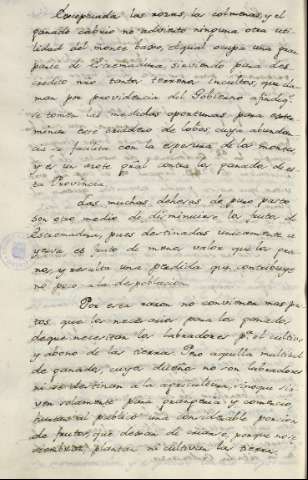 Exceptuada las zorras, las colmenas, y el
ganado cabrio no advierto ninguna otra uti
lidad del monte bajo, el qual ocupa una gran
parte de Extremadura, sirviendo para des
credito mio tanto terreno inculto, que da
man por providencia del Gobierno afin de q.e
se tomen las medidas oportunas para exter
minar este criadero de lobos cuya abundan
cia se facilita con la espesura de los montes
y es un azote gral contra los ganados de es
ta Provincia.
Las muchas dehesas de puro pasto
son otro medio de disminuir los frutos de
Extremadura, pues destinadas unicamente a
yerva es fruto de menos valor que los gra
nos, y resulta una perdida que contribuye
no poco a la despoblacion.
Por esta razon no convienen mas pas
tos que los necesarios para los ganados,
de que necesitan los labradores p.a el cultivo,
y abono de las tierras. Pero aquella multitud
de ganados, cuyos dueños no son labradores
ni se destinan a la agricultura, sino que sir
ven solamente para grangeria y comercio,
usurpan al publico una considerable porcion
de frutos, que dexan de nacer, porque no se
siembran, plantan ni cultivan las tierras.